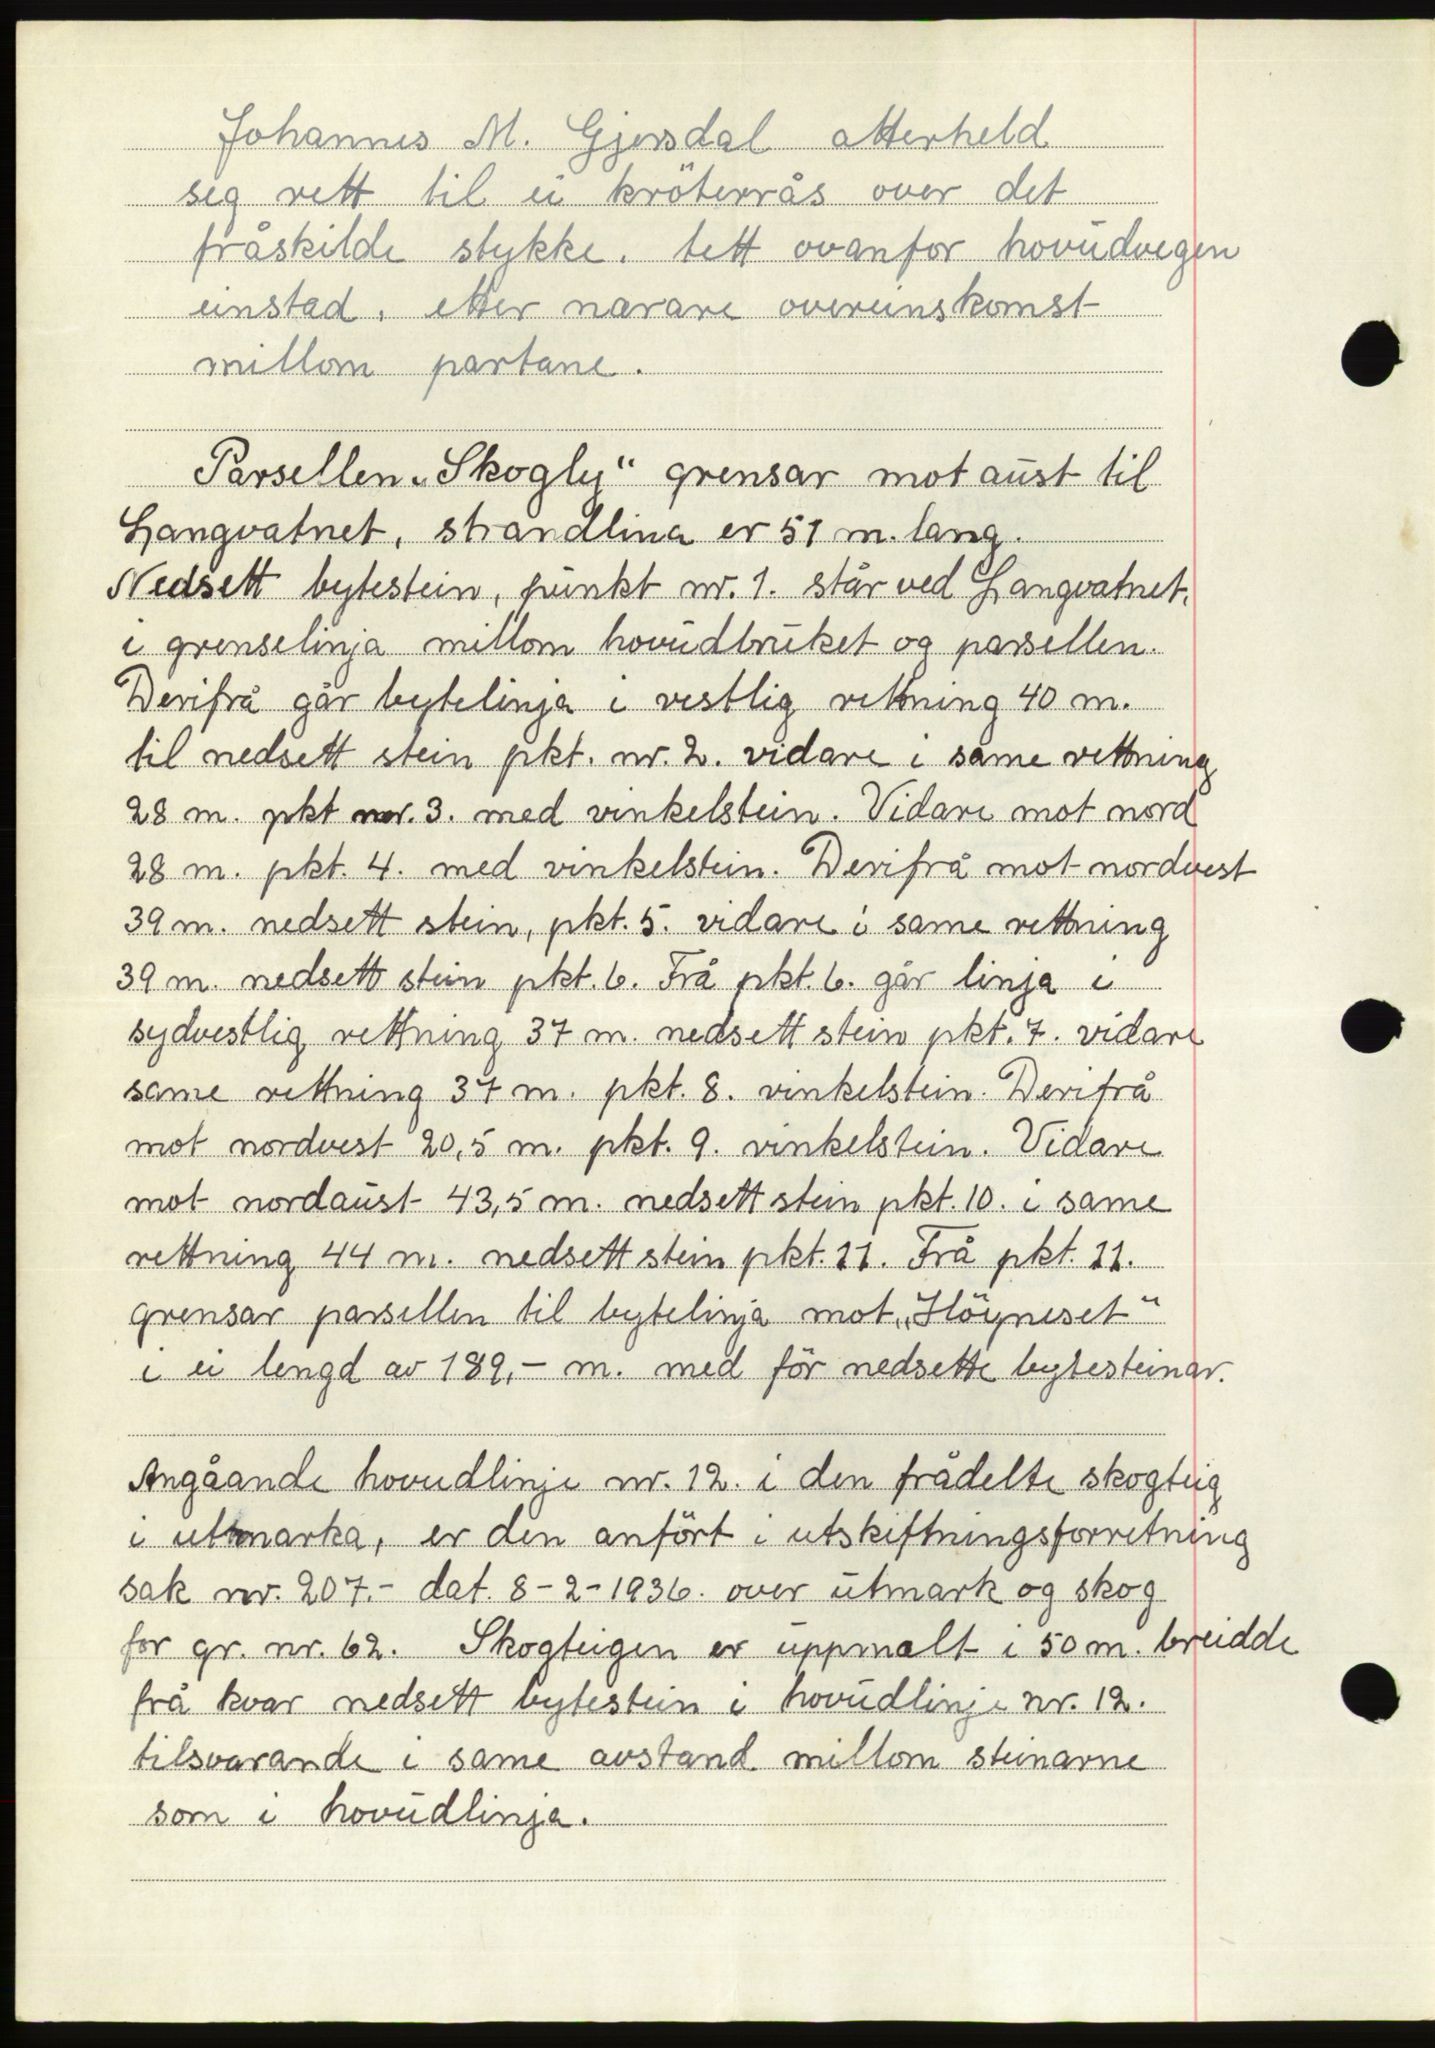 Johannes M. Gjersdal atterheld
seg rett til ei kröterrås over det
fråskilde stykke. tett ovanfor hovudvegen
einstad. etter nærare overeinskomst
millom partane.
Parsellen „Skogly“ grensar mot aust til
Langvatnet, strandlina er 51 m. lang.
Nedsett bytestein, punkt nr. 1. står ved Langvatnet,
i grenselinja millom hovudbruket og parsellen.
Derifrå går bytelinja i vestlig rettning 40 m.
til nedsett stein pkt. nr. 2. vidare i same rettning
28 m. pkt nr. 3. med vinkelstein. Vidare mot nord
28 m. pkt. 4. med vinkelstein. Derifrå mot nordvest
39 m. nedsett stein, pkt. 5. vidare i same rettning
39 m. nedsett stein pkt. 6. Frå pkt. 6. går linja i
sydvestlig rettning 37 m. nedsett stein pkt. 7. vidare
same rettning 37 m. pkt. 8. vinkelstein. Derifrå
mot nordvest 20,5 m. pkt. 9. vinkelstein. Vidare
mot nordaust 43,5 m. nedsett stein pkt. 10. i same
rettning 44 m. nedsett stein pkt. 11. Frå pkt. 11.
grensar parsellen til bytelinja mot „Höyneset“
i ei lengd av 189,- m. med för nedsette bytesteinar.
Angåande hovudlinje nr. 12. i den frådelte skogteig
i utmarka, er den anfört i utskiftningsforretning
sak nr. 207.- dat. 8-2-1936. over utmark og skog
for gr. nr. 62. Skogteigen er uppmalt i 50 m. breidde
frå kvar nedsett bytestein i hovudlinje nr. 12.
tilsvarande i same avstand millom steinarne
som i hovudlinja.